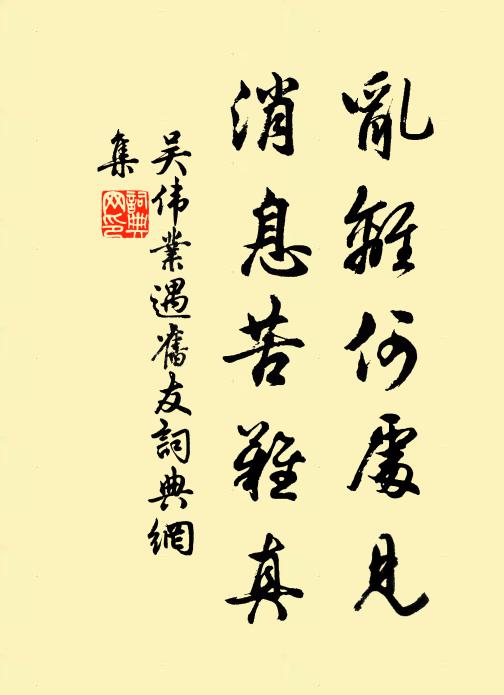 亂離何處見
消息苦難真
吴伟業遇舊友詞典網
集
詞典網印